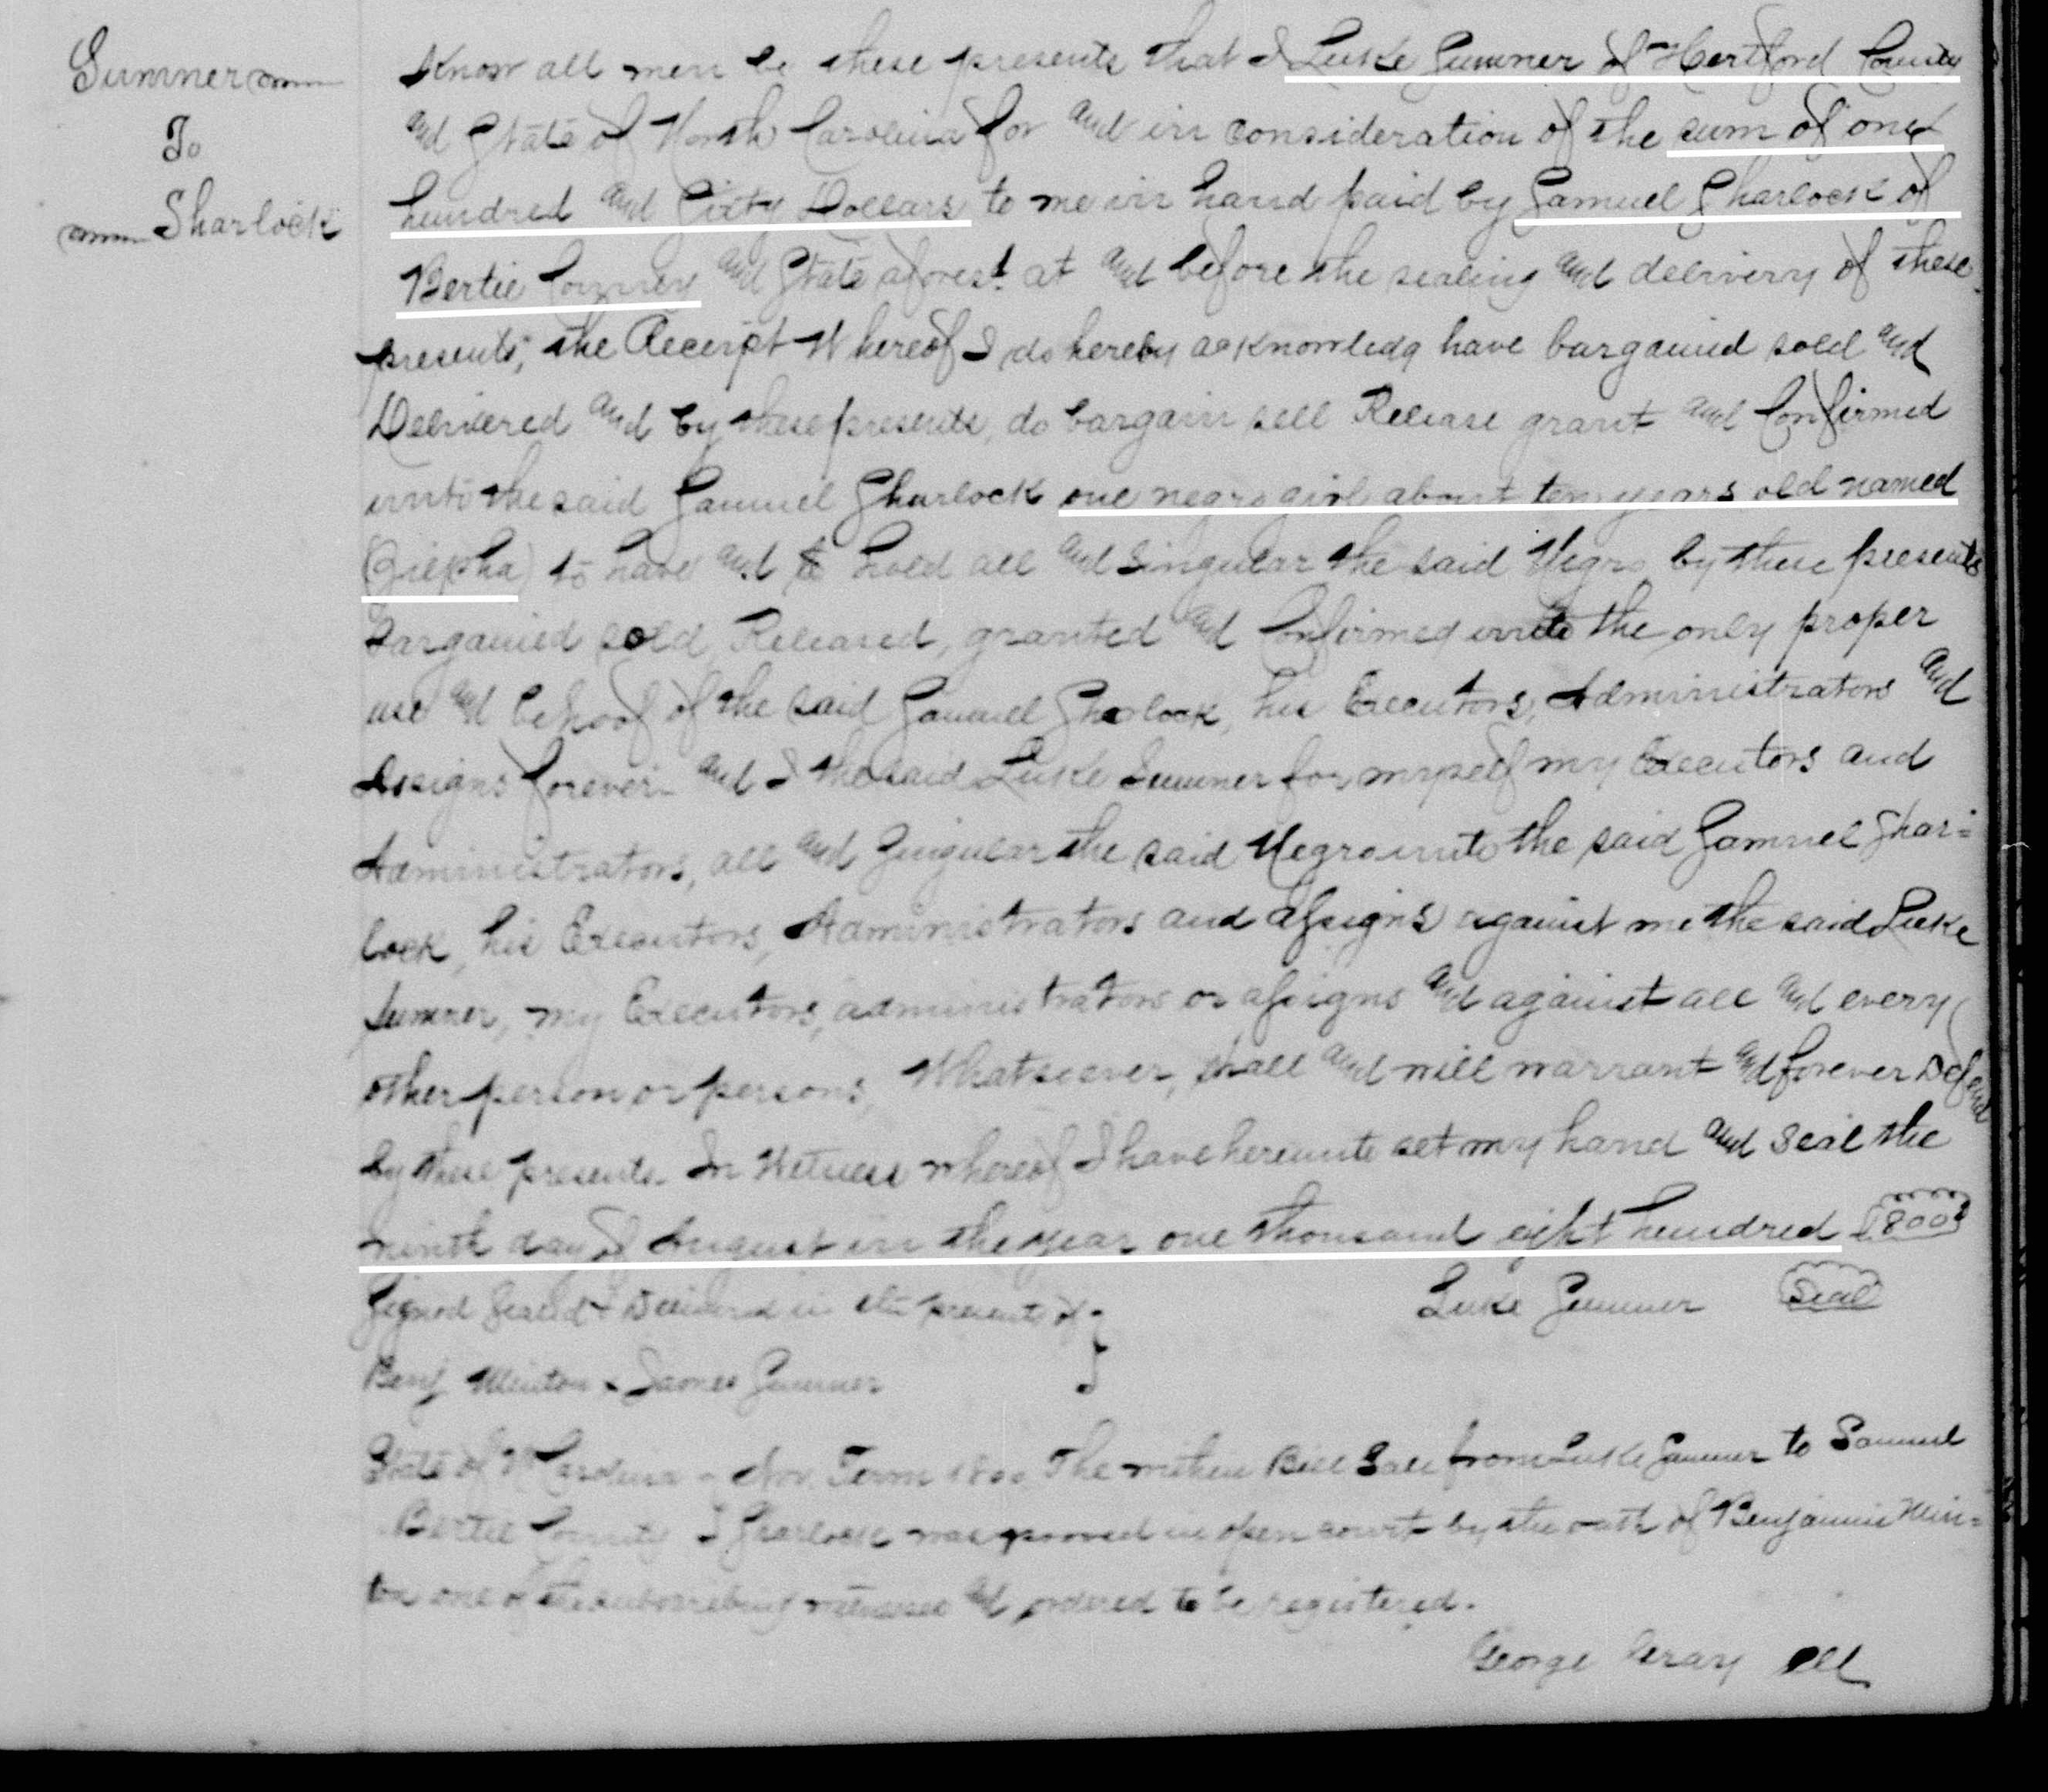 Sumner
To
Sharlock
Know all men be these presents that I Luke Sumner of Hertford County
and State of North Carolina for and in consideration of the sum of one
hundred and Sixty Dollars to me in hand paid by Samuel Sharlock of
Bertie County and State aforesd. at and before the sealing and delivery of these
presents, the Receipt Whereof I do hereby acknowledg have bargained sold and
Delivered and by these presents, do bargain sell Release grant and Confirmed
unto the said Samuel Sharlock one negro girl about ten years old named
to have and to hold all and Singular the said Negro by these presents
Bargained sold Released, granted and Confirmed unto the only proper
use and behoof of the said Samuel Sharlock, his Executors, Administrators and
Assigns forever and I the said Luke Sumner for myself my Executors and
Administrators, all and Singular the said Negro unto the said Samuel Shar=
lock, his Executors, Administrators and assigns against me the said Luke
Sumner, my Executors, administrators or assigns and against all and every
other person or persons, Whatsoever, shall and will warrant and forever Defend
by these presents. In Witness whereof I have hereunto set my hand and Seal the
ninth day of August in the year one thousand eight hundred 1800
Signed Sealed & Delivered in the presents of
Luke Sumner Seal
Benj Minton & James Sumner
State of N Carolina Nov. Term 1800 The written Bill Sale from Luke Sumner to Samuel
Bertie County Sharlock was prooved in open court by the oath of Benjamin Min=
ton one of the subscribing witnesses and ordered to be registered.
George Gray